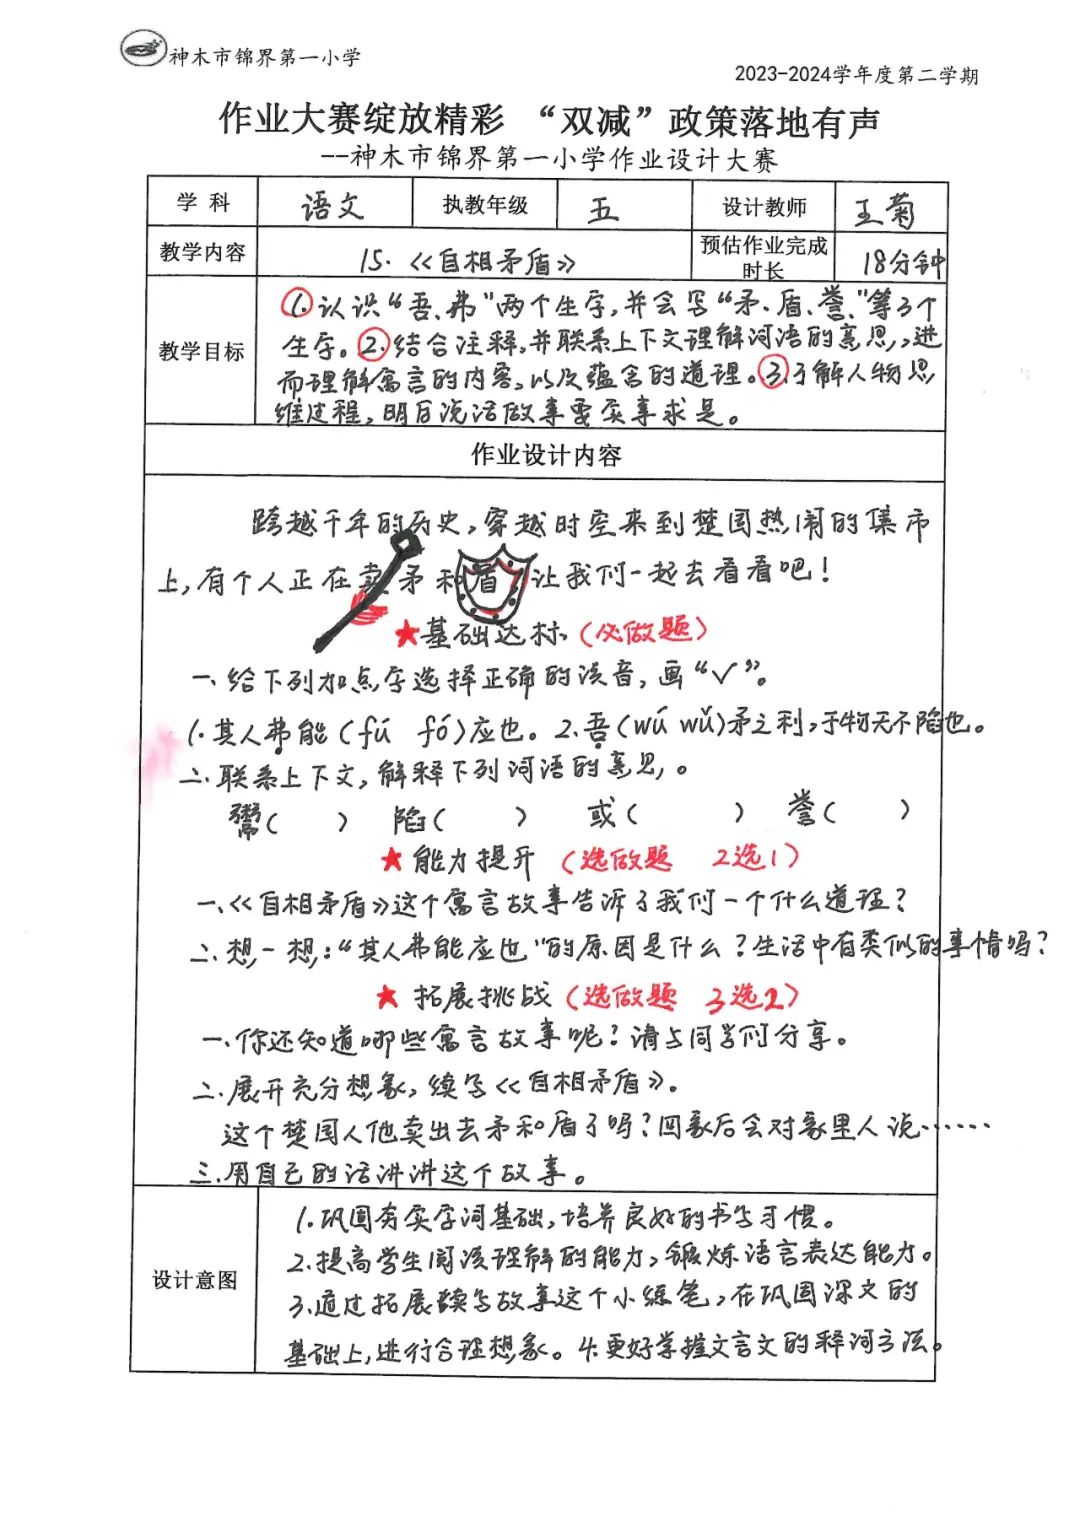 神木市锦界第一小学
2023-2024学年度第二学期
作业大赛绽放精彩 “双减”政策落地有声
--神木市锦界第一小学作业设计大赛
学 科 语文 执教年级 五 设计教师 王菊
教学内容 15.《自相矛盾》 预估作业完成时长 18分钟
教学目标
①.认识“吾、弗”两个生字,并会写“矛、盾、誉”等3个
生字。②.结合注释,并联系上下文理解词语的意思,进
而理解寓言的内容,以及蕴含的道理。③.了解人物思
维过程,明白说话做事要实事求是。
作业设计内容
跨越千年的历史,穿越时空来到楚国热闹的集市
上,有个人正在卖矛和盾,让我们一起去看看吧!
★基础达标(必做题)
一、给下列加点字选择正确的读音,画“√”。
1.其人弗能(fú fó)应也。2.吾(wú wǔ)矛之利,于物无不陷也。
二、联系上下文,解释下列词语的意思。
鬻( ) 陷( ) 或( ) 誉( )
★能力提升(选做题 2选1)
一、《自相矛盾》这个寓言故事告诉了我们一个什么道理?
二、想一想:“其人弗能应也”的原因是什么?生活中有类似的事情吗?
★拓展挑战(选做题 3选2)
一、你还知道哪些寓言故事呢?请与同学们分享。
二、展开充分想象,续写《自相矛盾》。
这个楚国人他卖出去矛和盾了吗?回家后会对家里人说……
三、用自己的话讲讲这个故事。
设计意图
1.巩固夯实字词基础,培养良好的书写习惯。
2.提高学生阅读理解的能力,锻炼语言表达能力。
3.通过拓展续写故事这个小练笔,在巩固课文的
基础上,进行合理想象。4.更好掌握文言文的释词方法。